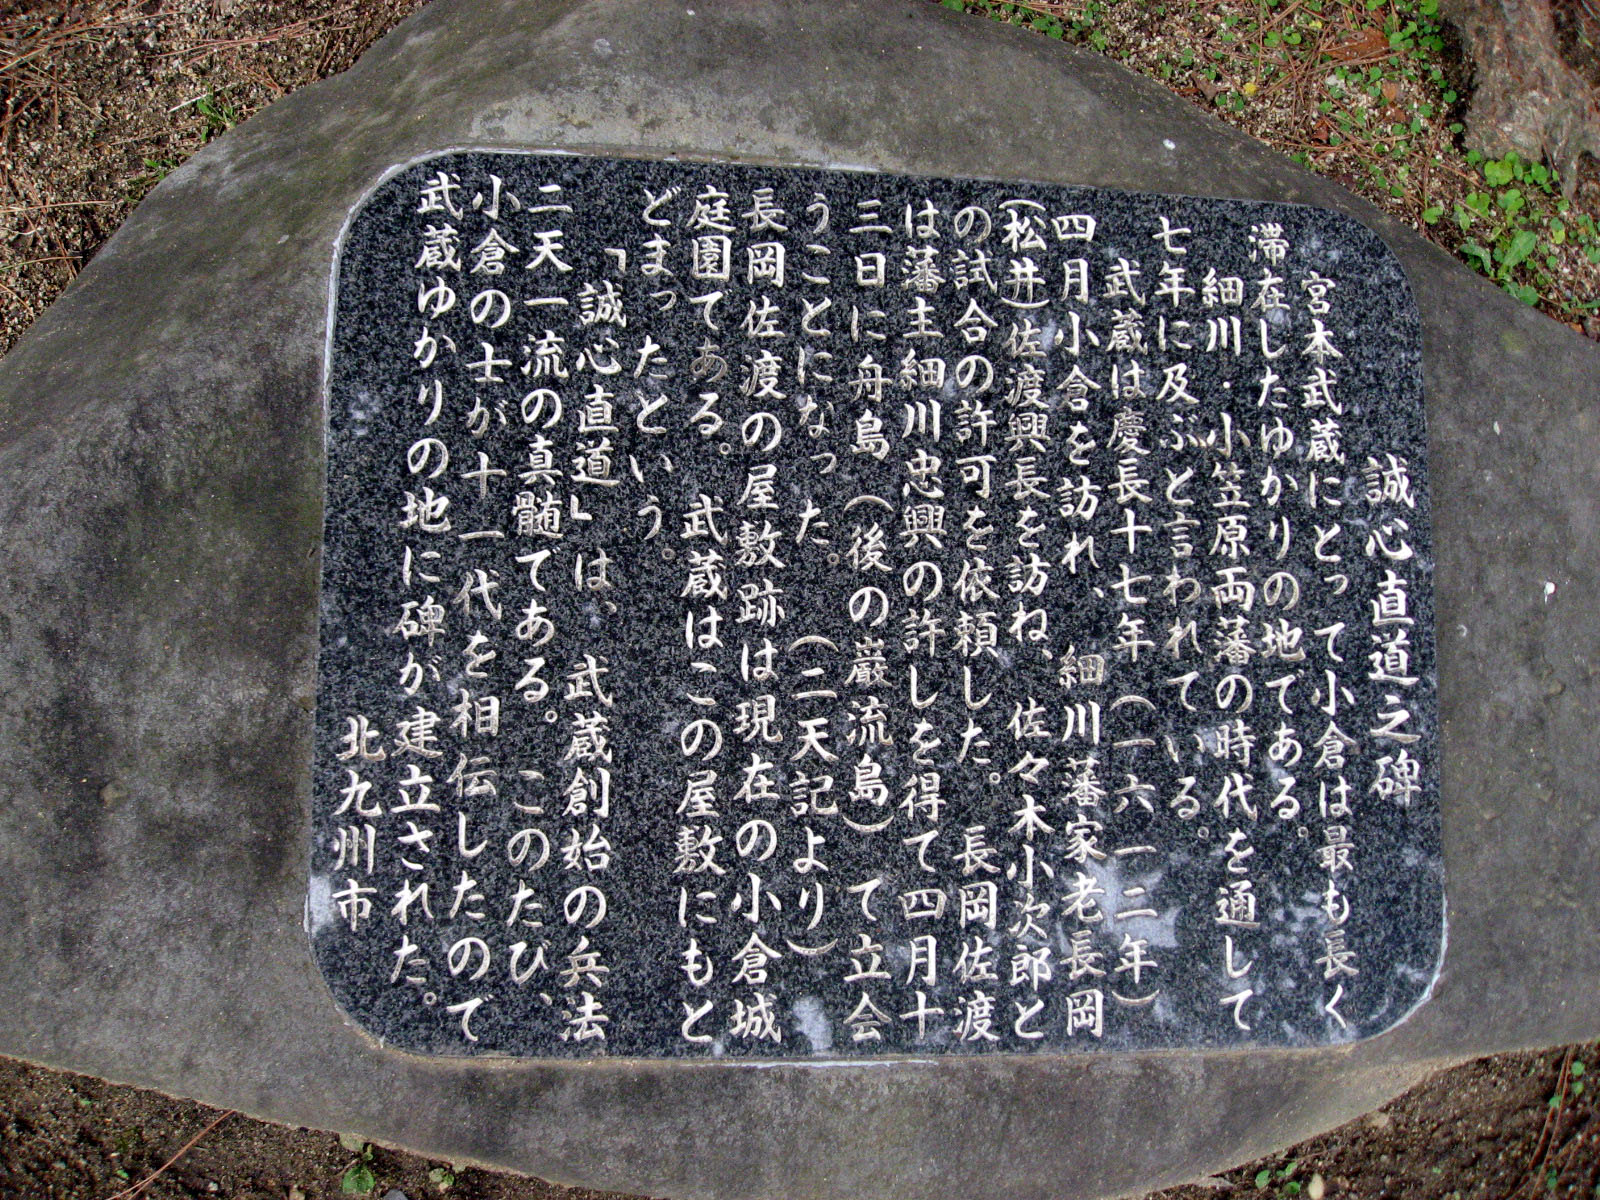 誠心直道之碑
宮本武蔵にとって小倉は最も長く
滞在したゆかりの地である。
細川・小笠原両藩の時代を通して
七年に及ぶと言われている。
武蔵は慶長十七年（一六一二年）
四月小倉を訪れ、細川藩家老長岡
（松井）佐渡興長を訪ね、佐々木小次郎と
の試合の許可を依頼した。長岡佐渡
は藩主細川忠興の許しを得て四月十
三日に舟島（後の巖流島）で立会
うことになった。（二天記より）
長岡佐渡の屋敷跡は現在の小倉城
庭園である。武蔵はこの屋敷にもと
どまったという。
「誠心直道」は、武蔵創始の兵法
二天一流の真髄である。このたび、
小倉の士が十一代を相伝したので
武蔵ゆかりの地に碑が建立された。
北九州市